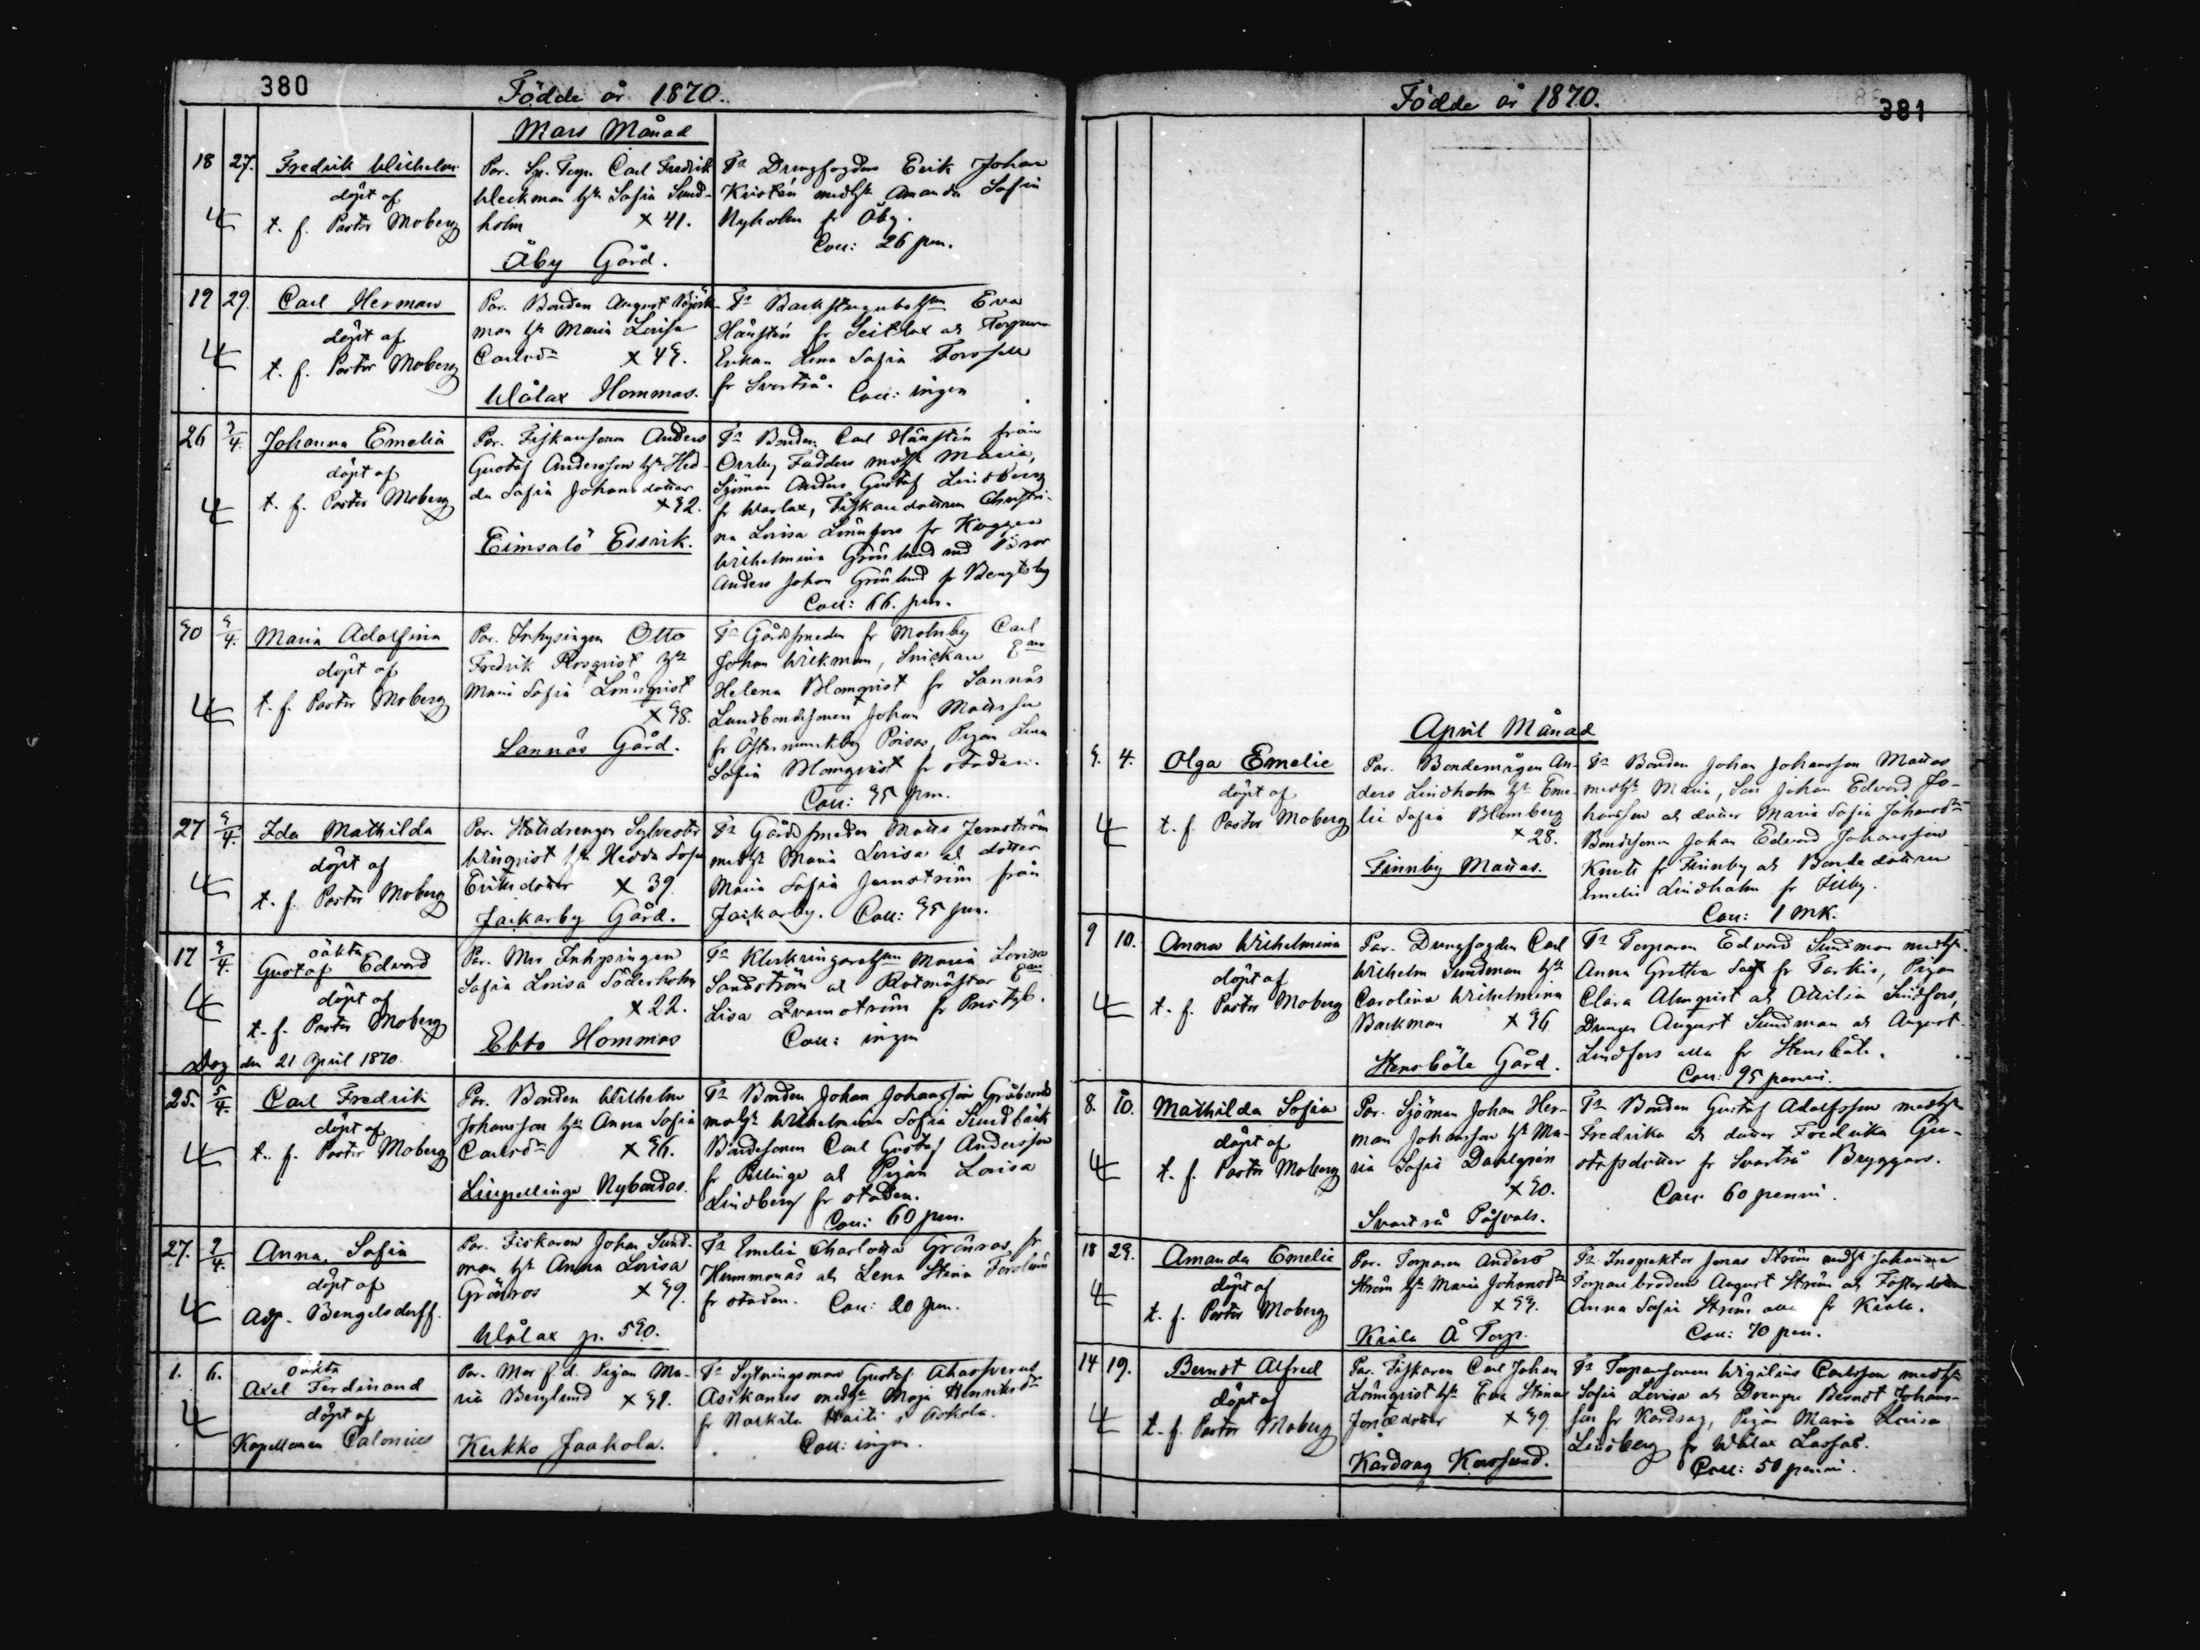 380
Födde år 1870.
Mars Månad
18 27. Fredrik Wilhelm
döpt af
t. f. Pastor Moberg
Par. Sp. Torp. Carl Fredrik
Weckman hu Sofia Sund-
holm x 41.
Åby Gård.
Drengfogden Erik Johan
Amanda Sofia
Nyholm fr Åby.
Coll: 26 pen.
19 29. Carl Herman
döpt af
t. f. Pastor Moberg
Par. Bonden August Björk-
man Maria Lovisa
Carlsdr
Wålax Hommas.
Eva
fr Seitlax
Enkan Lena Sofia Forssell
fr Svartså. Coll: ingen
26 Johanna Emelia
döpt af
t. f. Pastor Moberg
Par. Fiskarsonen Anders
Gustaf Andersson Hed-
da Sofia Johansdotter
x 32.
Eimsalö Essvik.
Bonden Carl från
Fadders Maria,
Sjöman Anders Gustaf Lindberg
fr Warlax, Fiskaredottren Christi-
na Lovisa fr Kuggen
Wilhelmina Grönlund med Bror
Anders Johan Grönlund fr Bengtsby
Coll: 66. pen.
30 3/4. Maria Adolfina
döpt af
t. f. Pastor Moberg
Par. Inhysingen Otto
Fredrik
Maria Sofia Lönnqvist
x 38.
Sannäs Gård.
Gårdssmeden fr Molnby Carl
Johan Wickman, Snickare
Helena Blomqvist fr Sannäs
Landbondesonen Johan Mattsson
fr Östermunkby Poisas, Pigan Lena
Sofia Blomqvist fr staden.
Coll: 35 pen.
27 3/4. Ida Mathilda
döpt af
t. f. Pastor Moberg
Par. Statsdrengen Sylvester
Winqvist Hedda Sofia
Eriksdotter x 39.
Jackarby Gård.
Gårdssmeden Matts Jernström
Maria Lovisa dotter
Maria Sofia Jernström från
Jackarby. Coll: 35 pen.
17 3/4. oäkta
Gustaf Edvard
döpt af
t. f. Pastor Moberg
Dog den 21 April 1870.
Par. Mor Inhysingen
Sofia Lovisa Söderholm
x 22.
Ebbo Hommas
Maria Lovisa
Sandström Rotmästar
Lisa Qvarnström fr
Coll: ingen
25. 5/4. Carl Fredrik
döpt af
t. f. Pastor Moberg
Par. Bonden Wilhelm
Johansson Anna Sofia
Carlsdr x 36.
Lillpellinge Nybondas.
Bonden Johan Johansson
Wilhelmina Sofia Sundbäck
Bondesonen Carl Gustaf Andersson
fr Pellinge Pigan Lovisa
Lindberg fr staden.
Coll: 60 pen.
27. Anna Sofia
döpt af
Adj. Bengelsdorff.
Par. Fiskaren Johan Sund-
man Anna Lovisa
Grönros x 39.
Wålax p. 530.
Emelia Charlotta Grönros fr
Hummonäs Lena Stina
fr staden. Coll: 20 pen.
1. 6. oäkta
Axel Ferdinand
döpt af
Kapellanen Calonius
Par. Mor f. d. Pigan Ma-
ria Berglund
Kerkko Jaakola.
Sytningsman Gustaf Ahasverus
Asikainen Maja Henriksdr
fr Askola.
Coll: ingen.
381
Födde år 1870.
April Månad
3. 4. Olga Emelie
döpt af
t. f. Pastor Moberg
Par. Bondemågen An-
ders Lindholm Eme-
lie Sofia Blomberg
x 28.
Finnby Mattas.
Bonden Johan Johansson Mattas
Maria, Son Johan Edvard Jo-
hansson dotter Maria Sofia Johansdr
Bondsonen Johan Edvard Johansson
Knuts fr Finnby Bonde dottren
Emelie Lindholm fr Illby.
Coll: 1 mk.
9 10. Anna Wilhelmina
döpt af
t. f. Pastor Moberg
Par. Drengfogden Carl
Wilhelm Sundman
Carolina Wilhelmina
Backman x 36
Stensböle Gård.
Torparen Edvard Sundman
Anna Gretha fr Tarkis, Pigan
Clara Almqvist Otilia Lindfors,
Drengen August Sundman August
Lindfors alla fr Stensböle.
Coll: 95 penni.
8. 10. Mathilda Sofia
döpt af
t. f. Pastor Moberg
Par. Sjöman Johan Her-
man Johansson Ma-
ria Sofia Dahlgrén
x 30.
Svartså Påfvals.
Bonden Gustaf Adolfsson
Fredrika dotter Fredrika Gu-
stafsdotter fr Svartså Bryggars.
Coll: 60 penni.
18 29. Amanda Emelie
döpt af
t. f. Pastor Moberg
Par. Torparen Anders
Ström Maria Johansdr
x 33.
Kiala Å Torp.
Inspektor Jonas Ström Johanna
Torpare brodren August Ström Foster dotter
Anna Sofia Ström alla fr Kiala.
Coll: 70 pen.
14 19. Berndt Alfred
döpt af
t. f. Pastor Moberg
Par. Fiskaren Carl Johan
Lönnqvist Eva Stina
x 39
Kardrag Korssund.
Torparsonen Wigilius Carlsson
Sofia Lovisa Drengen Berndt Johans-
son fr Kardrag, Pigan Maria Lovisa
Lindberg fr Wålax Lassas.
Coll: 50 penni.